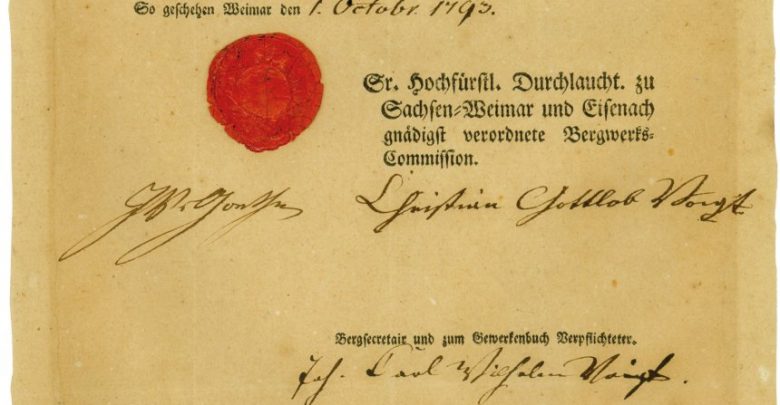 So geschehen Weimar den 1. Octobr 1793.
Sr. Hochfürstl. Durchlaucht. zu
Sachsen-Weimar und Eisenach
gnädigst verordnete Bergwerks-
Commission.
JWvGoethe Christian Gottlob Voigt
Bergsecretair und zum Gewerkenbuch Verpflichteter.
Joh. Carl Wilhelm Voigt.